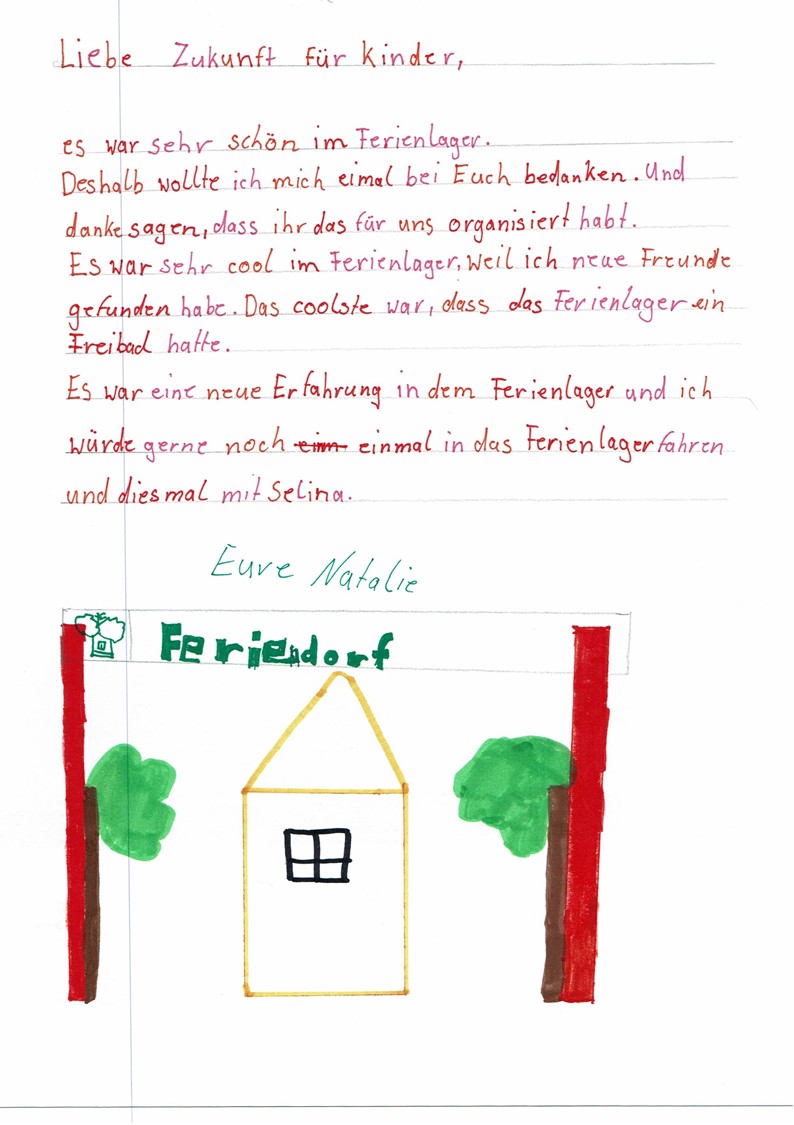 Liebe Zukunft für Kinder,
es war sehr schön im Ferienlager.
Deshalb wollte ich mich eimal bei Euch bedanken. Und
danke sagen, dass ihr das für uns organisiert habt.
Es war sehr cool im Ferienlager, weil ich neue Freunde
gefunden habe. Das coolste war, dass das Ferienlager ein
Freibad hatte.
Es war eine neue Erfahrung in dem Ferienlager und ich
würde gerne noch eim einmal in das Ferienlager fahren
und diesmal mit Selina.
Eure Natalie
Feriendorf